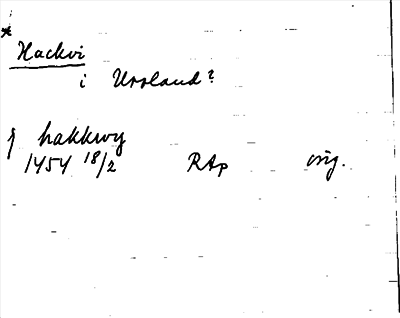 * Hackvi
i Ursland?
j hakkwy
1454 18/2 RAp orig.